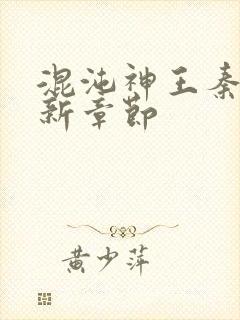 混沌神王秦
新章节
黄少萍